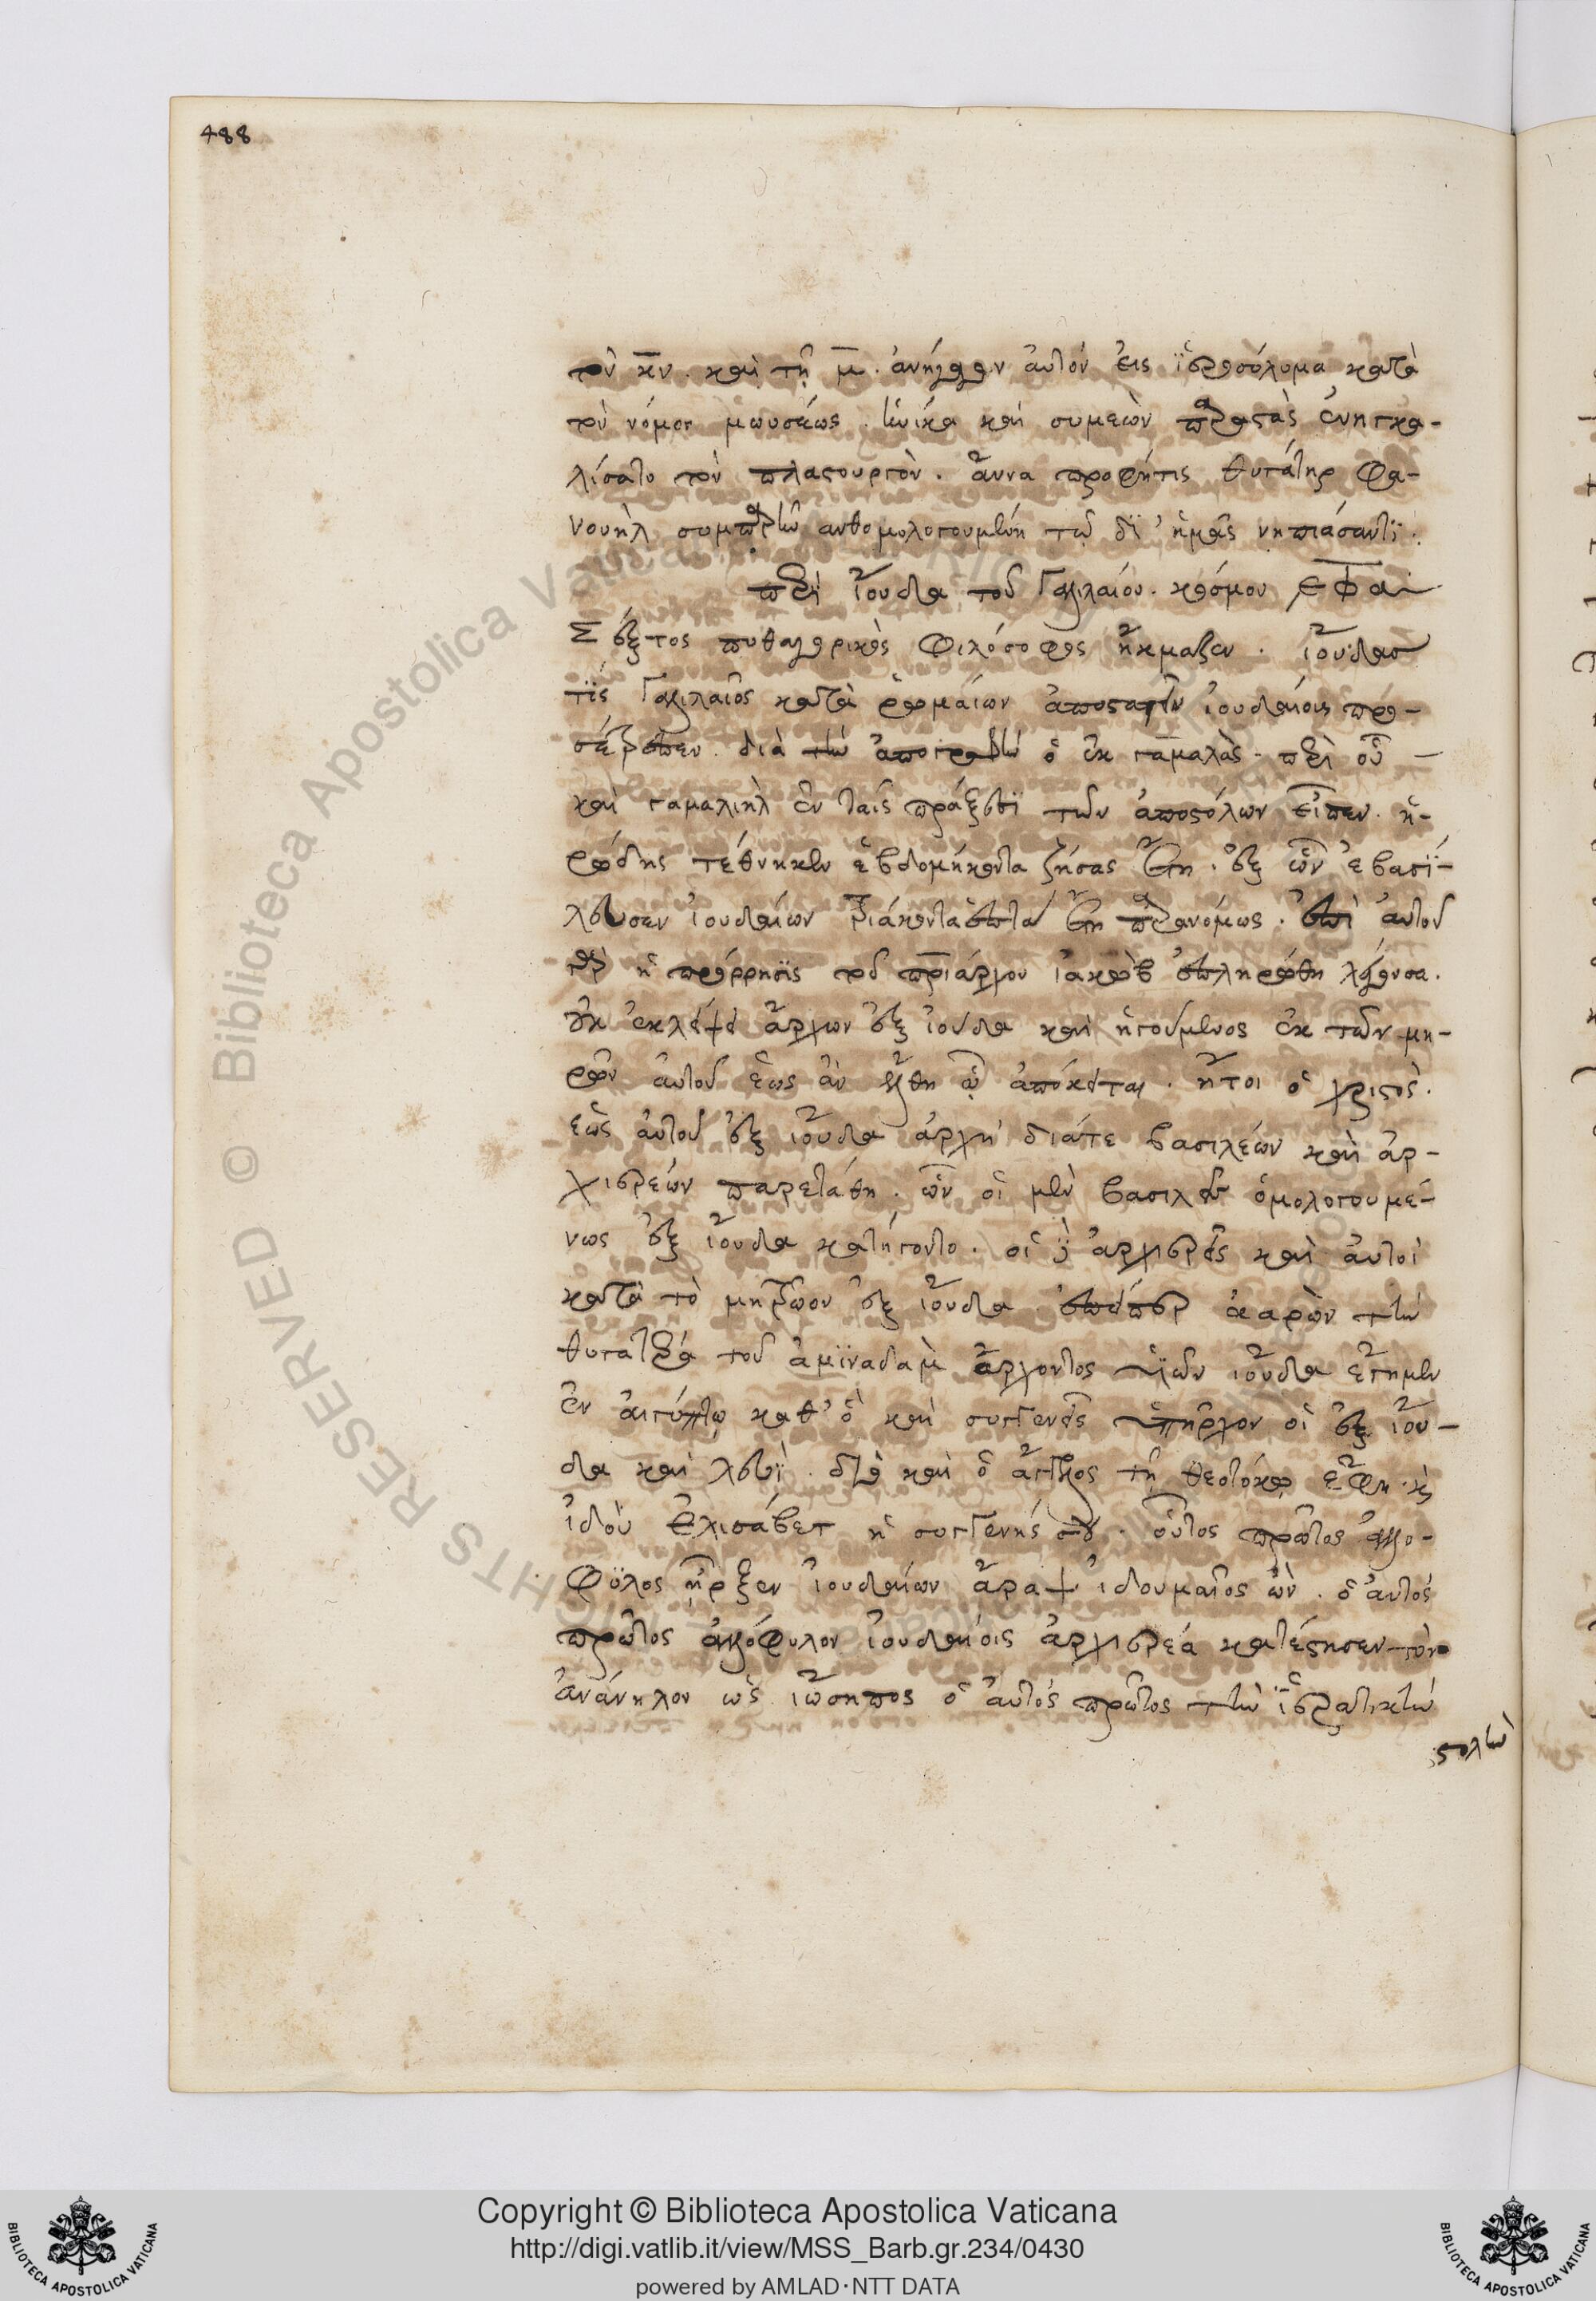 488
τὸν κ̅ν̅. καὶ τῇ μ̅. ἀνήγαγον ἀυτὸν ἐις ἱεροσόλυμα κατὰ
τὸν νόμον μωυσέως. ἡνίκα καὶ συμεὼν παραστὰς ἐνηγκα-
λίσατο τὸν πλαστουργὸν. ἄννα προφήτις θυγάτηρ φα-
νουὴλ συμπαρῆν ανθομολογουμένη τῷ δἰ ἡμᾶς νηπιάσαντι.
περὶ ἰούδα τοῦ Γαλιλαίου. κόσμου ͵ΕΦα
Σέξτος πυθαγορικὸς φιλόσοφος ἤκμαζεν. ἰούδασ
τὶς Γαλιλαῖος κατὰ ῥωμαίων ἀποστασίαν ἰουδαίοις προ-
σέτρεπεν. διὰ τὴν ἀπογραφὴν ὁ ἐκ γαμαλὰς. περὶ οὗ
καὶ γαμαλιὴλ ἐν ταῖς πράξεσι τῶν ἀποστόλων εἶπεν. ἡ-
ρώδης τέθνηκεν ἑβδομήκοντα ζήσας ἔτη. ἐξ ὧν ἐβασί-
λευσεν ἰουδαίων τριάκονταεπτὰ ἔτη παρανόμως. ἐπὶ ἀυτοῦ
γὰρ ἡ πρόρρησις τοῦ πριάρχου ἰακὼβ ἐπληρώθη λέγουσα.
οὐκ ἐκλείψει ἄρχων ἐξ ἰούδα καὶ ἡγούμενος ἐκ τῶν μη-
ρῶν ἀυτοῦ ἕως ἂν ἔλθη ᾧ ἀπόκειται. ἤτοι ὁ χριστὸς.
ἕως ἀυτοῦ ἐξ ἰούδα ἀρχὴ διάτε βασιλέων καὶ ἀρ-
χιερέων παρετάθη. ὧν οἱ μὲν βασιλεῖς ὁμολογουμέ-
νως ἐξ ἰούδα κατήγοντο. οἱ δὲ ἀρχιερεῖς καὶ ἀυτοὶ
κατὰ τὸ μητρῶον ἐξ ἰούδα. ἐπείπερ ἀαρὼν τὴν
θυγατέρα τοῦ ἀμιναδαμ ἄρχοντος υἱῶν ἰούδα ἔγημεν
ἐν ἀιγύπτῳ καθ' ὃ καὶ συγγενεῖς ὑπῆρχον οἱ ἐξ ἰού-
δα καὶ λευὶ. διὸ καὶ ὁ ἄγγελος τῇ θεοτόκῳ ἔφη. κ̀
ἰδοὺ ἐλισάβετ ἡ συγγενής σου. οὗτος πρῶτος ἀλλό-
φυλος ἦρξεν ἰουδαίων ἄραψ ἰδουμαῖος ὢν. ὁ ἀυτὸς
πρῶτος ἀλλόφυλον ἰουδαίοις ἀρχιερέα κατέστησεν τὸν
ἀνάνηλον ὡς ἰώσηπος ὁ ἀυτὸς πρῶτος τὴν ἱερατικὴν
στολὴν
BIBLIOTECA APOSTOLICA VATICANA
Copyright © Biblioteca Apostolica Vaticana
http://digi.vatlib.it/view/MSS_Barb.gr.234/0430
powered by AMLAD·NTT DATA
BIBLIOTECA APOSTOLICA VATICANA